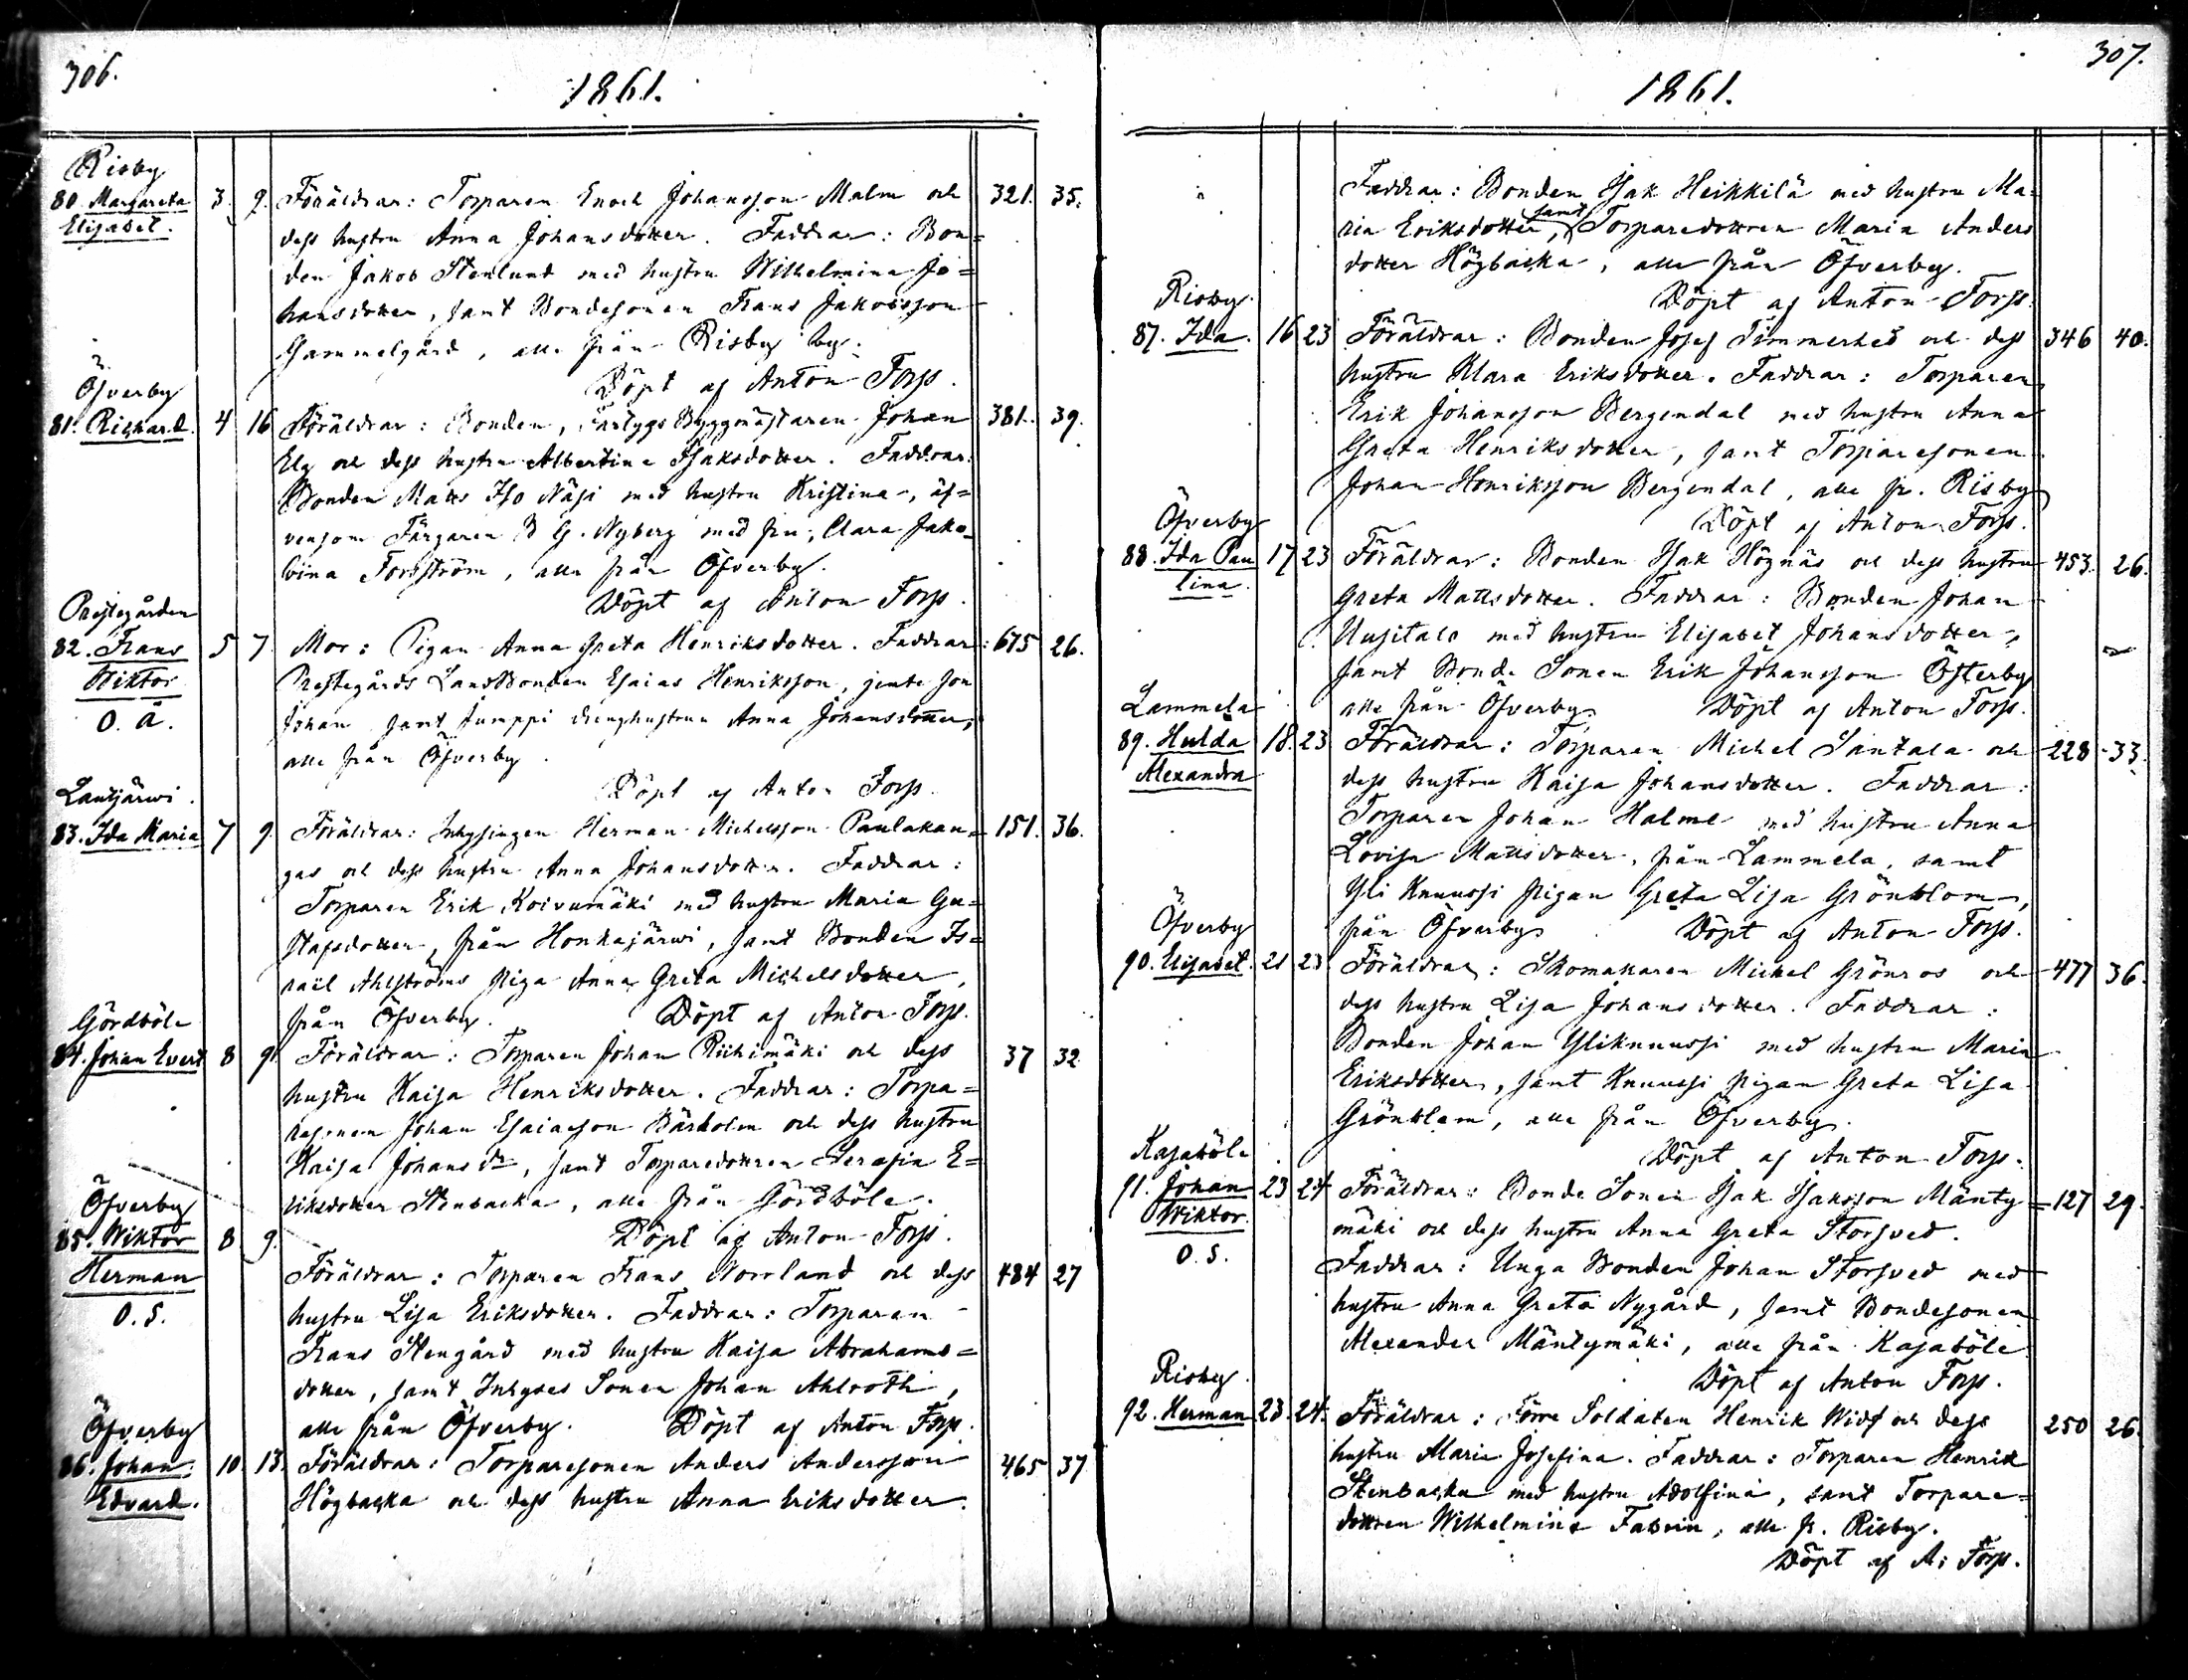 306.
1861.
Risby
80. Margareta 3. 9. Föräldrar: Torparen Enoch Johansson Malm och 321. 35.
Elisabet. dess hustru Anna Johansdotter. Faddrar: Bon=
den Jakob Stenlund med hustru Wilhelmina Jo=
hansdotter, samt Bondesonen Frans Jakobsson
Gammelgård, alla från Risby by.
Döpt af Anton Forss.
Öfverby
81. Richard. 4 16 Föräldrar: Bonden, Fartygs Byggmästaren Johan 381. 39.
Elg och dess hustru Albertina Isaksdotter. Faddrar:
Bonden Matts Iso Näsi med hustru Kristina, äf=
vensom Färgaren G. Nyberg med fru, Clara Jako=
bina Forsström, alla från Öfverby.
Döpt af Anton Forss.
Prestegården
82. Frans 5 7 Mor: Pigan Anna Greta Henriksdotter. Faddrar: 675 26.
Wiktor Prestegårds Landbonden Esaias Henriksson, jemte son
O. ä. Johan samt Jumppi drenghustrun Anna Johansdotter,
alla från Öfverby.
Döpt af Anton Forss.
Lantjärwi.
83. Ida Maria 7 9. Föräldrar: Inhysingen Herman Michelsson Paulakan= 151. 36.
gas och dess hustru Anna Johansdotter. Faddrar:
Torparen Erik Koivumäki med hustru Maria Gu=
stafsdotter, från Honkajärwi, samt Bonden Is=
rael Ahlströms piga Anna Greta Michelsdotter,
från Öfverby. Döpt af Anton Forss.
Gördböle
84. Johan Evert 8 9. Föräldrar: Torparen Johan Riihimäki och dess 37 32
hustru Kaisa Henriksdotter. Faddrar: Torpa=
resonen Johan Esaiasson Bärholm och dess hustru
Kaisa Johansdr, samt Torparedottren Serafia E=
riksdotter Stenbacka, alla från Gördböle.
Döpt af Anton Forss.
Öfverby
85. Wiktor 8 9.
Herman Föräldrar: Torparen Frans Norrland och dess 484 27
O. S. hustru Lisa Eriksdotter. Faddrar: Torparen
Frans Stengård med hustru Kaisa Abrahams=
dotter, samt Inhyses Sonen Johan Ahlroth,
alla från Öfverby. Döpt af Anton Forss.
Öfverby
86. Johan 10. 13. Föräldrar: Torparesonen Anders Andersson 465 37
Edvard. Högbacka och dess hustru Anna Eriksdotter.
307.
1861.
Faddrar: Bonden Isak Heikkilä med hustru Ma=
ria Eriksdotter, samt Torparedottren Maria Anders
dotter Högbacka, alla från Öfverby.
Döpt af Anton Forss.
Risby.
87. Ida. 16 23 Föräldrar: Bonden Josef Timmerhed och dess 346 40.
hustru Klara Eriksdotter. Faddrar: Torparen
Erik Johansson Bergendal med hustru Anna
Greta Henriksdotter, samt Torparesonen
Johan Henriksson Bergendal, alla fr. Risby
Döpt af Anton Forss.
Öfverby
88. Ida Pau 17 23 Föräldrar: Bonden Isak Högnäs och dess hustru 453. 26.
lina. Greta Mattsdotter. Faddrar: Bonden Johan
Uusitalo med hustru Elisabet Johansdotter,
samt Bonde Sonen Erik Johansson Österby
alla från Öfverby. Döpt af Anton Forss.
Lammela
89. Hulda 18. 23 Föräldrar: Torparen Michel Santala och 228 33.
Alexandra dess hustru Kaisa Johansdotter. Faddrar:
Torparen Johan Halme med hustru Anna
Lovisa Mattsdotter, från Lammela, samt
Yli Knuussi pigan Greta Lisa Grönblom,
från Öfverby. Döpt af Anton Forss.
Öfverby
90. Elisabet. 21 23 Föräldrar: Skomakaren Michel Grönros och 477 36.
dess hustru Lisa Johansdotter. Faddrar:
Bonden Johan Yliknuussi med hustru Maria
Eriksdotter, samt Knuussi pigan Greta Lisa
Grönblom, alla från Öfverby.
Döpt af Anton Forss.
Kasaböle
91. Johan 23 24 Föräldrar: Bonde Sonen Isak Isaksson Mänty= 127 29.
Wiktor. mäki och dess hustru Anna Greta Storsved.
O. S. Faddrar: Unga Bonden Johan Storsved med
hustru Anna Greta Nygård, samt Bondesonen
Alexander Mäntymäki, alla från Kasaböle.
Döpt af Anton Forss.
Risby.
92. Herman 23. 24. Föräldrar: Förre Soldaten Henrik Widf och dess 250 26.
hustru Maria Josefina. Faddrar: Torparen Henrik
Stenbacka med hustru Adolfina, samt Torpare=
dottren Wilhelmina Fabrin, alla fr. Risby.
Döpt af A: Forss.